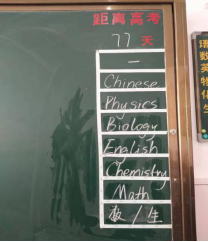 距离高考
77 天
一
Chinese
Physics
Biology
English
Chemistry
Math
/ 生
语
数
英
物
化
生